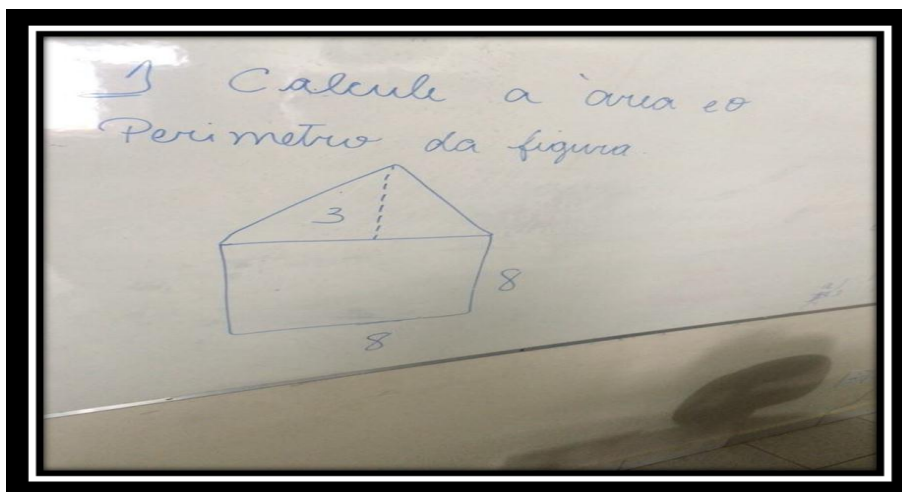 1 Calcule a àrea e o
Perimetro da figura.
3
8
8